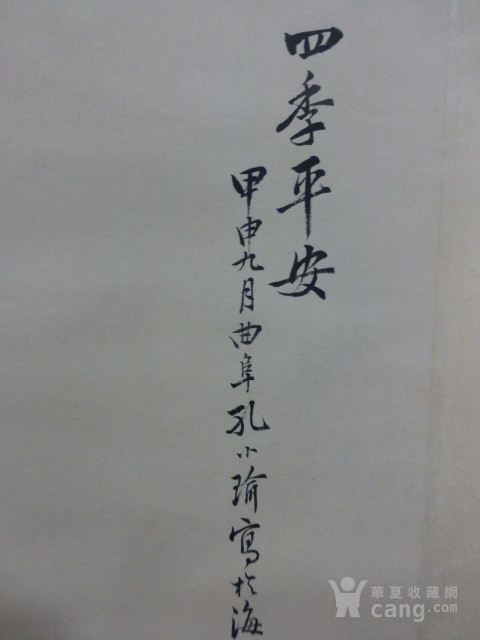 四季平安
甲申九月曲阜孔小瑜寫於海
華夏收藏網
cang.com